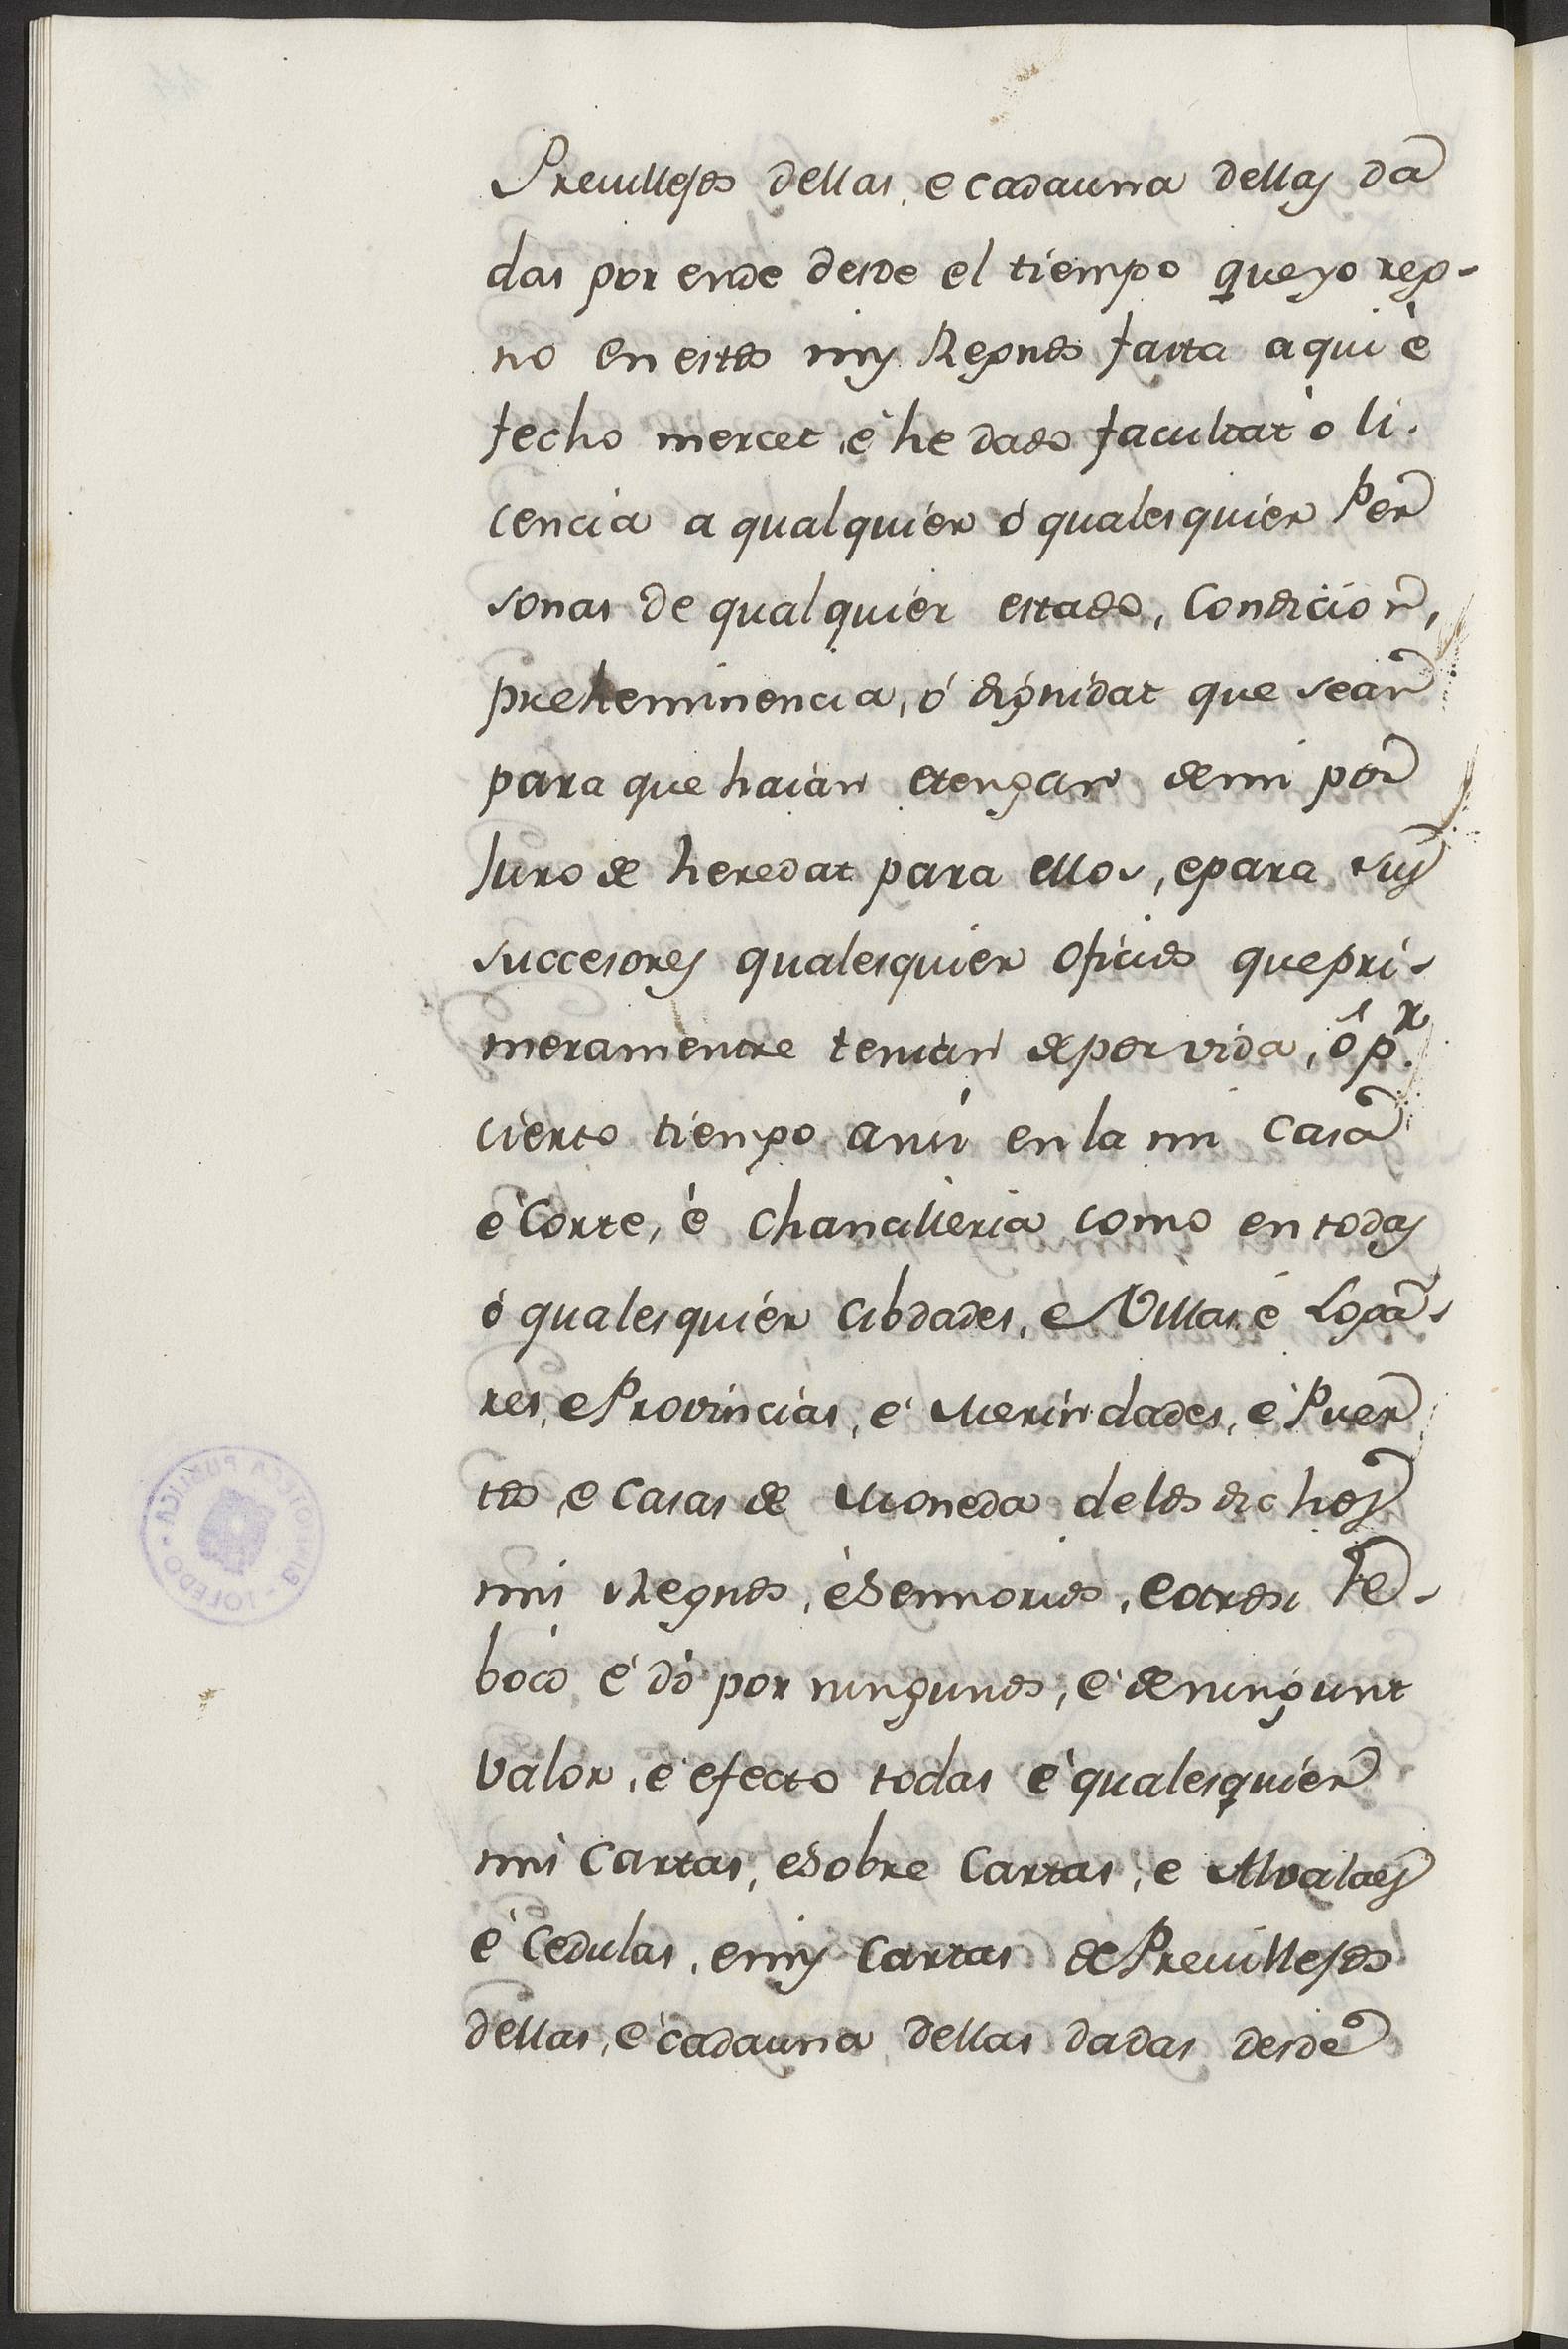 Previllejos dellas, e cadauna dellas da
das por ende desde el tiempo que yo reg-
no en estos mis Regnos fasta aqui è
fecho mercet, é he dado facultat o li-
cencia a qualquier ó qualesquier Per
sonas de qualquier estado, Condicion,
preheminencia, ó dignidat que sean
para que haian etengan de mi por
Juro de heredat para ellos, epara sus
succesores qualesquier oficios quepri-
meramentre tenian de por vida, ô p.r
cierto tiempo ansi enla mi Casa
é Corte, è Chancilleria como en todas
ó qualesquier Cibdades, e Villas é Loga-
res, e Provincias, é Merindades, é Puer
tos, e Casas de Moneda delos dichos
mis Regnos, èSennorios, eotrosi Re-
bocó é dó por ningunos, é de ningunt
valor, é efecto todas é qualesquier
mis Cartas, eSobre Cartas, e Alvalaes
é Cedulas, emis Cartas de Previllejos
dellas, é cadauna dellas dadas desde
BIBLIOTECA PUBLICA - TOLEDO -